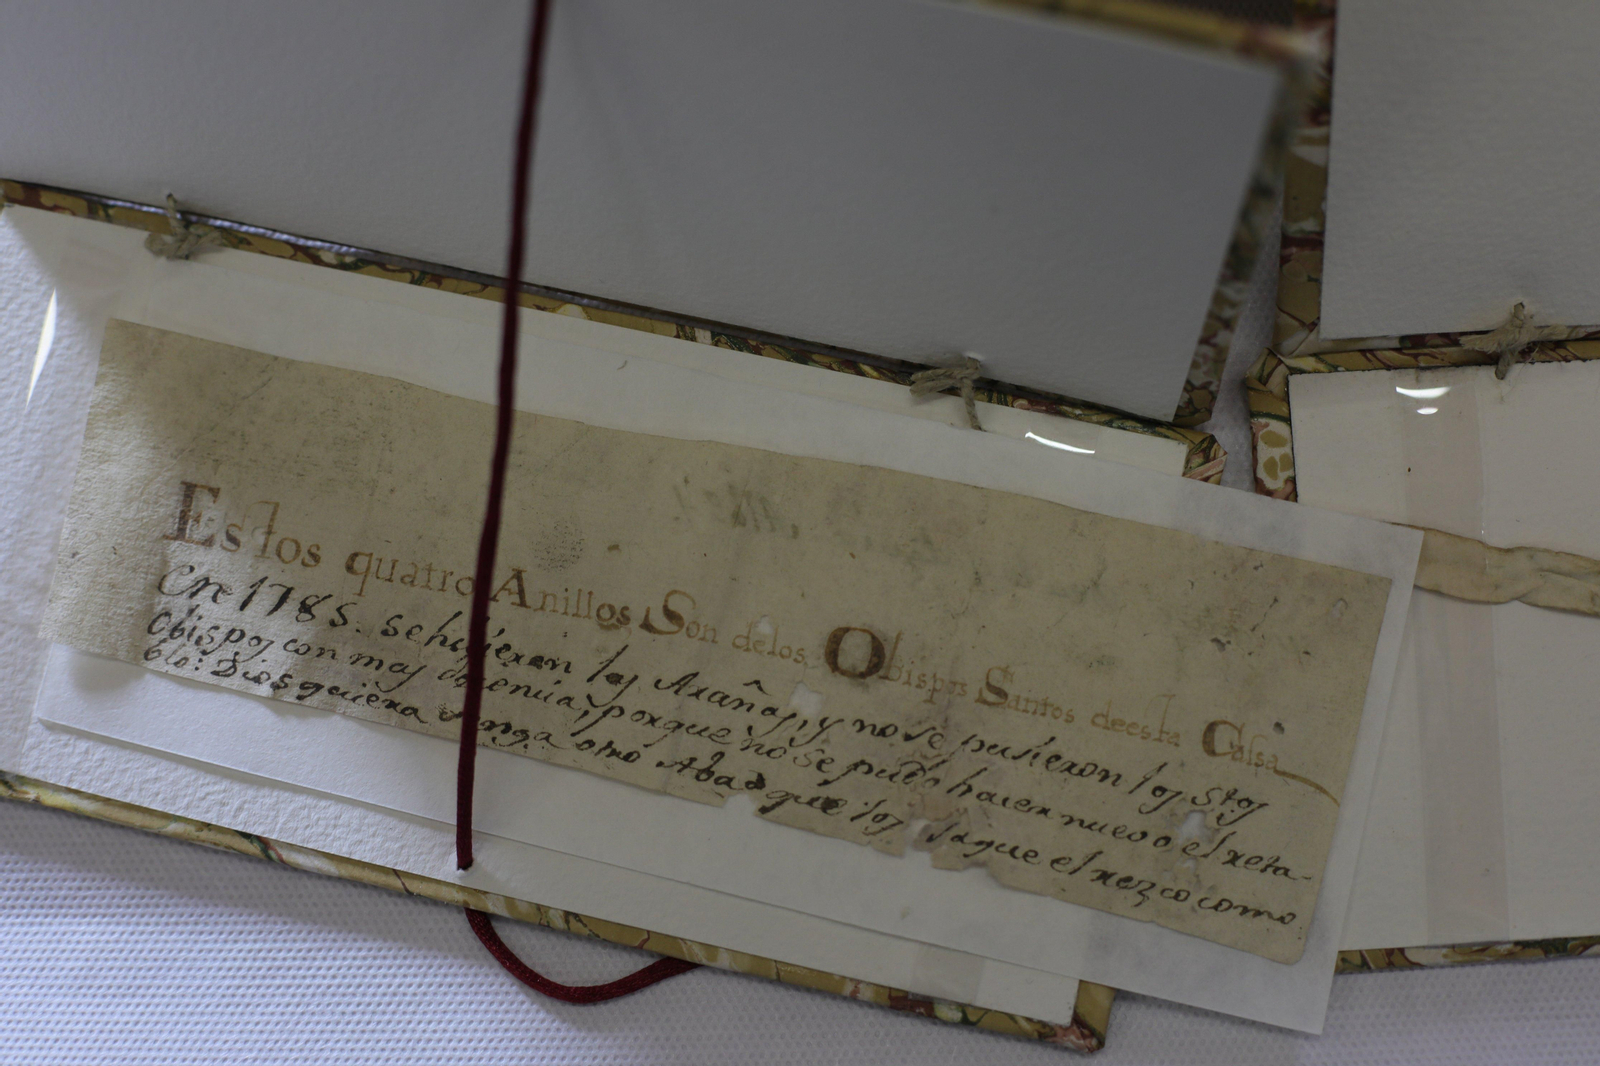 Estos quatro Anillos Son delos Obispos Santos deesta Cassa
En 1785. se hizieron las Arañas, y no se pusieron los Stos
Obispos con mas decencia, porque no se pudo hacer nuevo el reta-
blo: Dios quiera venga otro Abad que los saque el rezco como